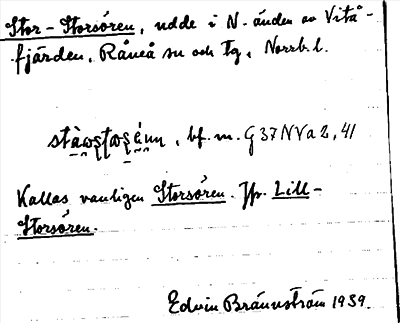 Stor-Storsören, udde i N-änden av Vitå-
fjärden, Råneå sn och tg, Norrb. l.
bf. m. G 37 N V a 2, 41
Kallas vanligen Storsören. Jfr. Lill-
Storsören.
Edvin Brännström 1939.